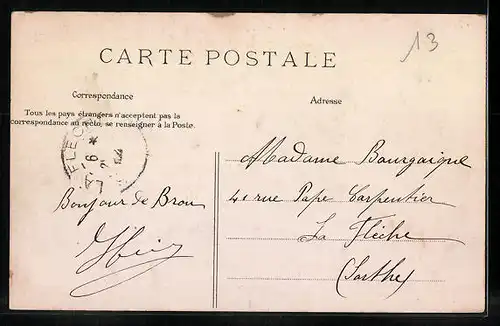 13
CARTE POSTALE
Correspondance
Adresse
Tous les pays étrangers n'acceptent pas la
correspondance au recto, se renseigner à la Poste.
LA FLECHE
Bonjour de Brou
Madame Bourgoigne
41 rue Pape Carpentier
La Flèche
(Sarthe)